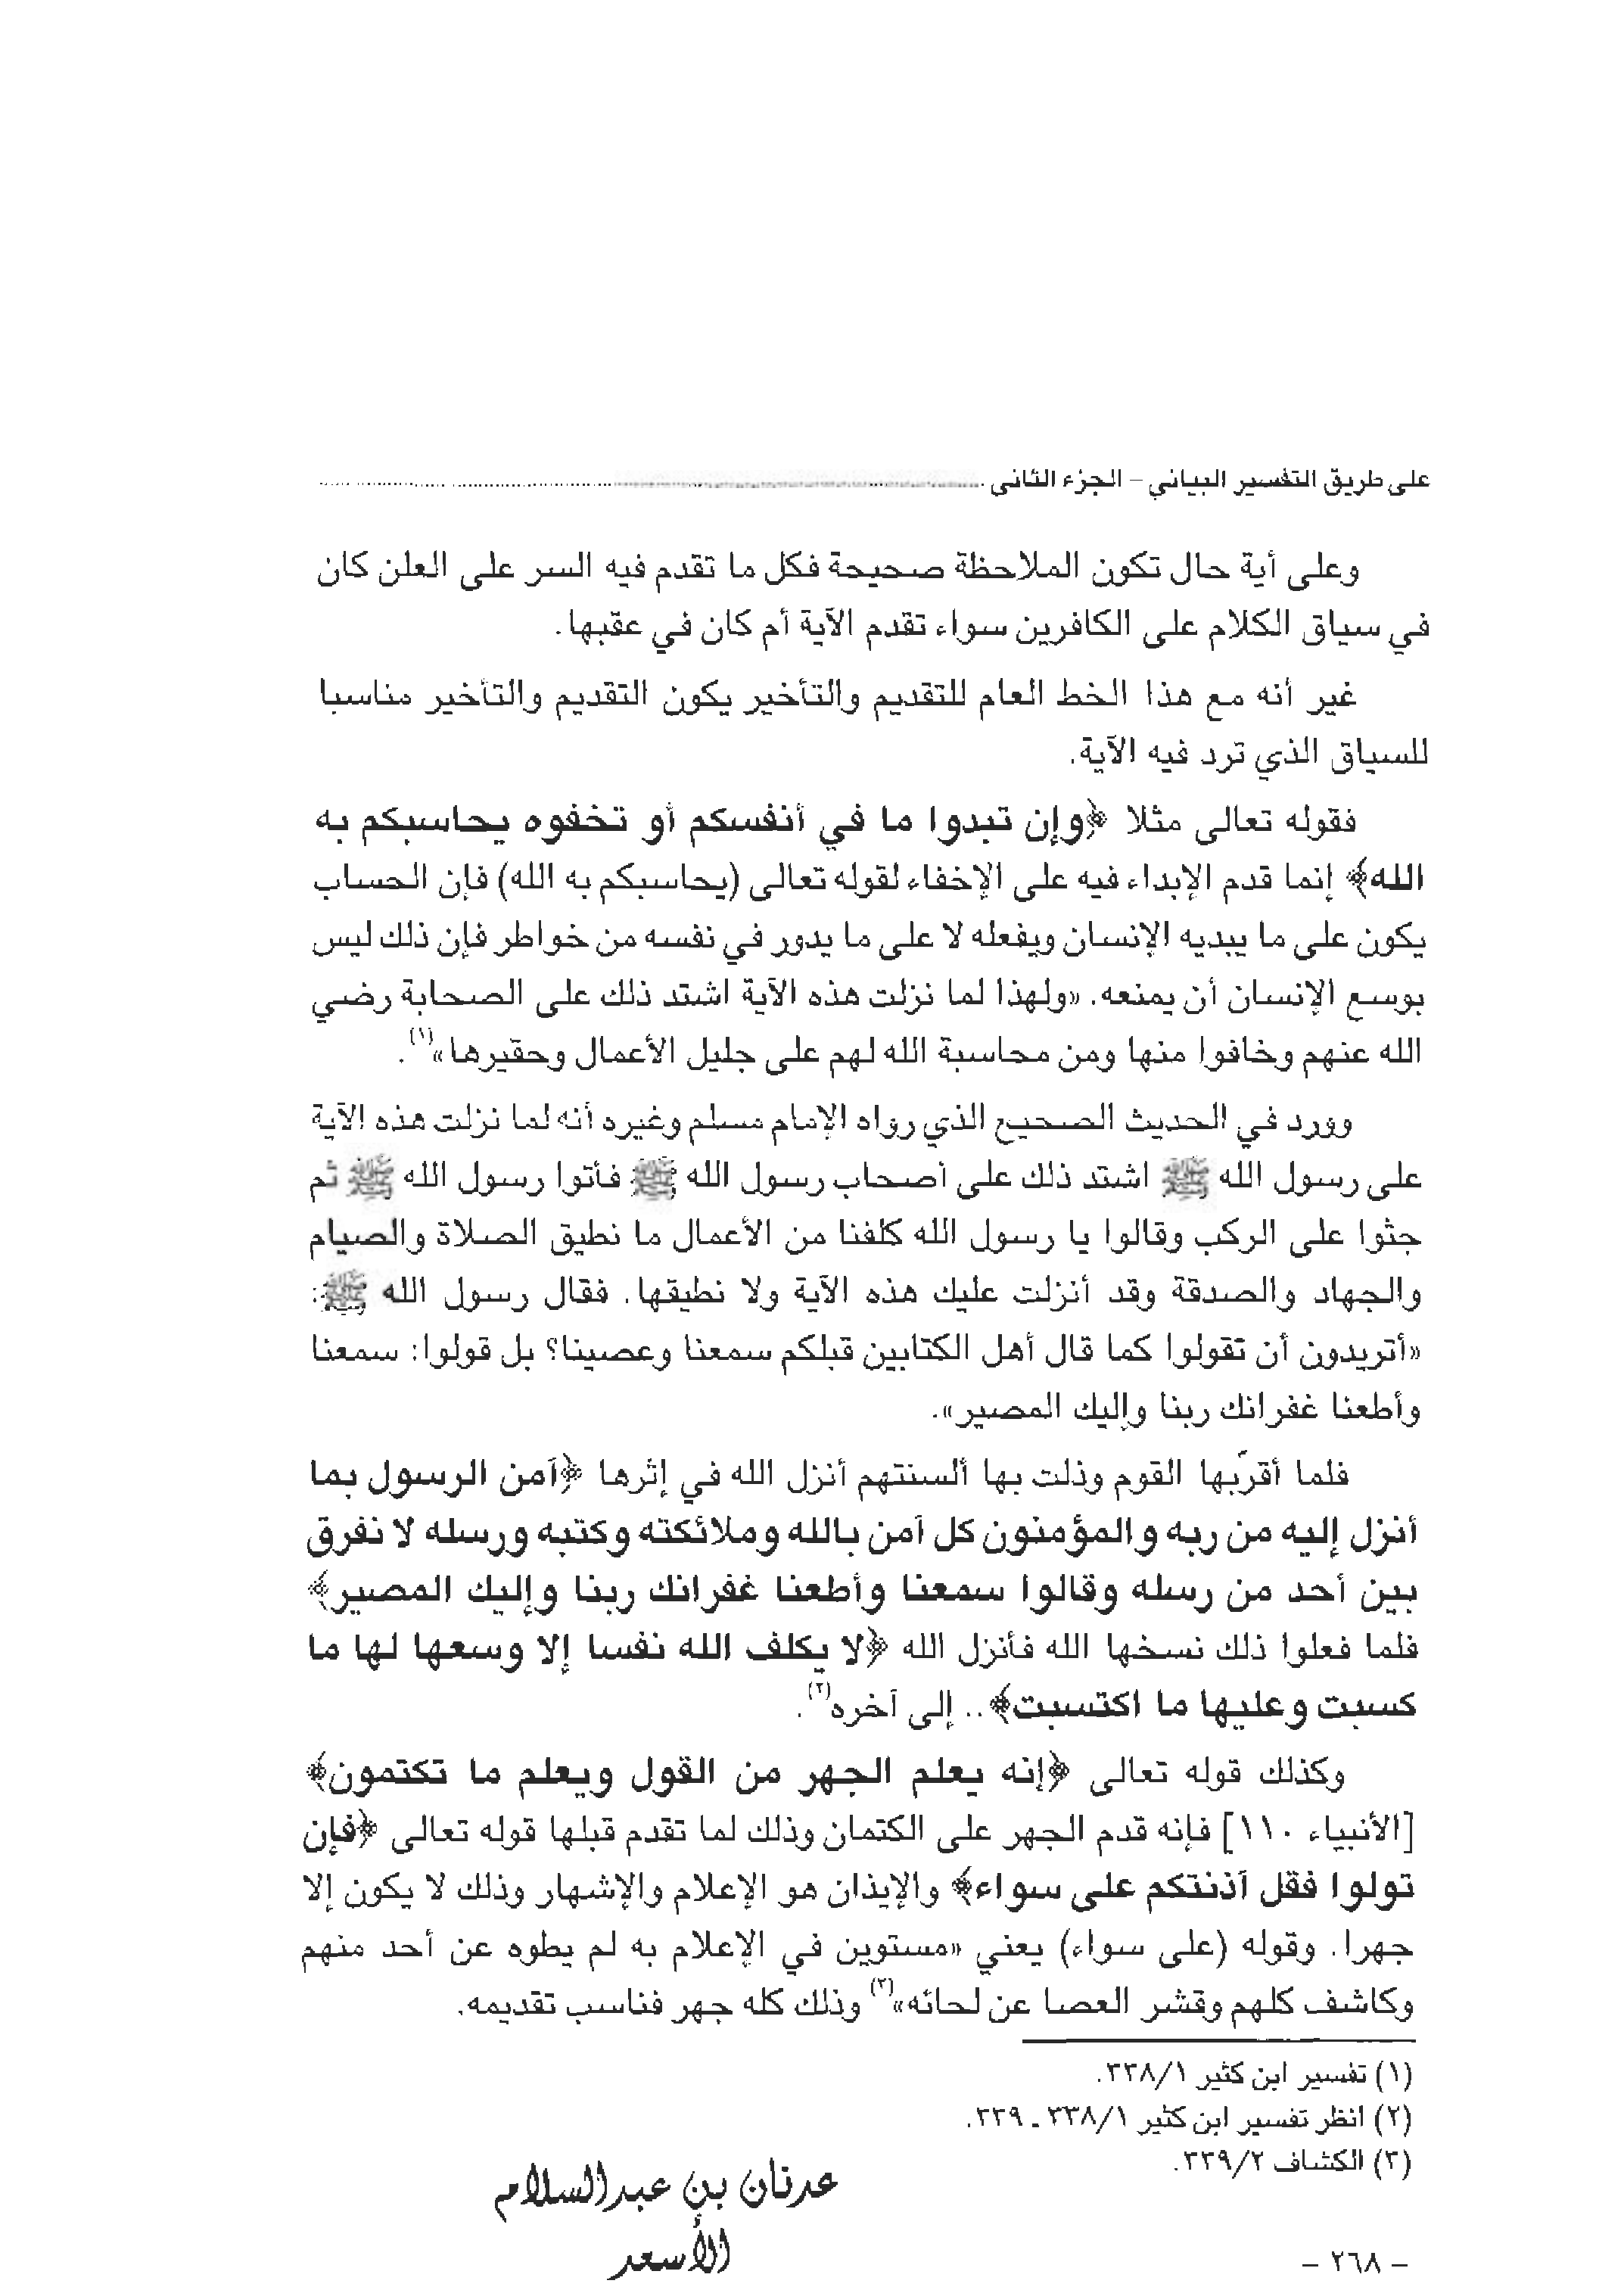 على طريق التفسير البياني – الجزء الثاني
وعلى أية حال تكون الملاحظة صحيحة فكل ما تقدم فيه السر على العلن كان
في سياق الكلام على الكافرين سواء تقدم الآية أم كان في عقبها.
غير أنه مع هذا الخط العام للتقديم والتأخير يكون التقديم والتأخير مناسبا
للسياق الذي ترد فيه الآية.
فقوله تعالى مثلا ﴿وإن تبدوا ما في أنفسكم أو تخفوه يحاسبكم به
الله﴾ إنما قدم الإبداء فيه على الإخفاء لقوله تعالى (يحاسبكم به الله) فإن الحساب
يكون على ما يبديه الإنسان ويفعله لا على ما يدور في نفسه من خواطر فإن ذلك ليس
بوسع الإنسان أن يمنعه. «ولهذا لما نزلت هذه الآية اشتد ذلك على الصحابة رضي
الله عنهم وخافوا منها ومن محاسبة الله لهم على جليل الأعمال وحقيرها»(١).
وورد في الحديث الصحيح الذي رواه الإمام مسلم وغيره أنه لما نزلت هذه الآية
على رسول الله ﷺ اشتد ذلك على أصحاب رسول الله ﷺ فأتوا رسول الله ﷺ ثم
جثوا على الركب وقالوا يا رسول الله كلفنا من الأعمال ما نطيق الصلاة والصيام
والجهاد والصدقة وقد أنزلت عليك هذه الآية ولا نطيقها. فقال رسول الله ﷺ:
«أتريدون أن تقولوا كما قال أهل الكتابين قبلكم سمعنا وعصينا؟ بل قولوا: سمعنا
وأطعنا غفرانك ربنا وإليك المصير».
فلما أقرّبها القوم وذلت بها ألسنتهم أنزل الله في إثرها ﴿آمن الرسول بما
أنزل إليه من ربه والمؤمنون كل آمن بالله وملائكته وكتبه ورسله لا نفرق
بين أحد من رسله وقالوا سمعنا وأطعنا غفرانك ربنا وإليك المصير﴾
فلما فعلوا ذلك نسخها الله فأنزل الله ﴿لا يكلف الله نفسا إلا وسعها لها ما
كسبت وعليها ما اكتسبت﴾.. إلى آخره(٢).
وكذلك قوله تعالى ﴿إنه يعلم الجهر من القول ويعلم ما تكتمون﴾
[الأنبياء ١١٠] فإنه قدم الجهر على الكتمان وذلك لما تقدم قبلها قوله تعالى ﴿فإن
تولوا فقل آذنتكم على سواء﴾ والإيذان هو الإعلام والإشهار وذلك لا يكون إلا
جهرا. وقوله (على سواء) يعني «مستوين في الإعلام به لم يطوه عن أحد منهم
وكاشف كلهم وقشر العصا عن لحائه»(٣) وذلك كله جهر فناسب تقديمه.
(١) تفسير ابن كثير ٣٣٨/١.
(٢) انظر تفسير ابن كثير ٣٣٨/١ ـ ٣٣٩.
(٣) الكشاف ٣٣٩/٢.
عدنان بن عبدالسلام
الأسعد
– ٢٦٨ –